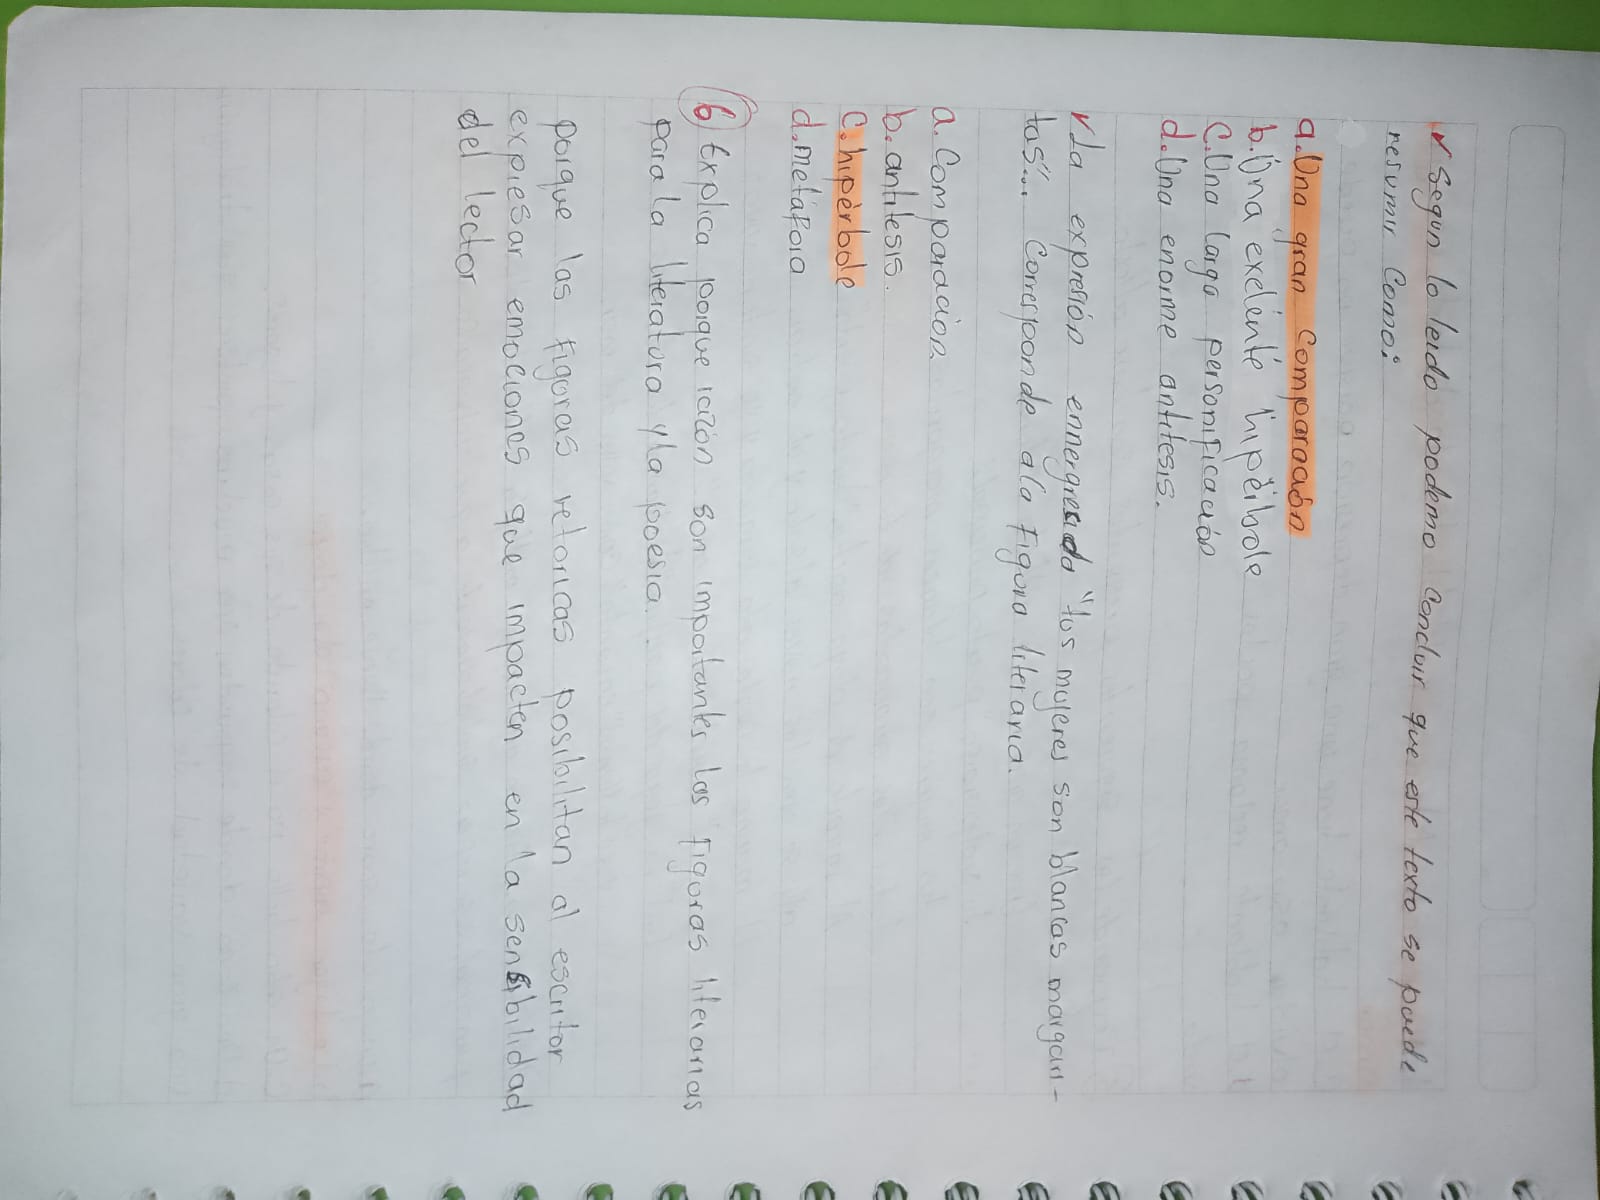 ✓ Segun lo leido podemo concluir que este texto se puede
resumir como:
a. Una gran comparación
b. Una exelente hipérbole
c. Una larga personificación
d. Una enorme antitesis.
✓ La expresión ennergrecida "tus mujeres son blancas margari-
tas"... corresponde a la figura literaria.
a. Comparacion
b. antitesis.
c. hipérbole
d. metáfora
6 Explica porque razón son importantes las figuras literarias
para la literatura y la poesia.
porque las figuras retoricas posibilitan al escritor
expresar emociones que impacten en la sensibilidad
del lector